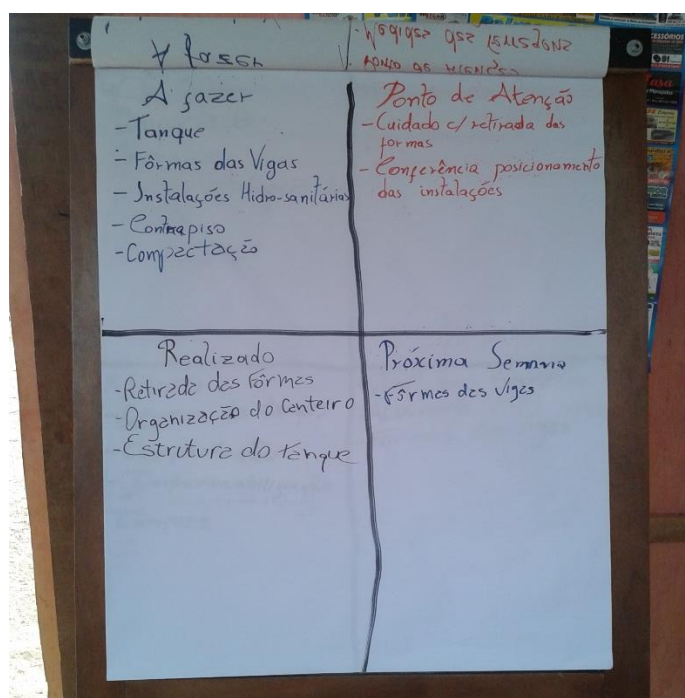 A fazer
- Tanque
- Fôrmas das Vigas
- Instalações Hidro-sanitárias
- Contrapiso
- Compactação
Ponto de Atenção
- Cuidado c/ retirada das
formas
- Conferência posicionamento
das instalações
Realizado
- Retirada das Fôrmas
- Organização do Canteiro
- Estrutura do tanque
Próxima Semana
- Fôrmas das Vigas